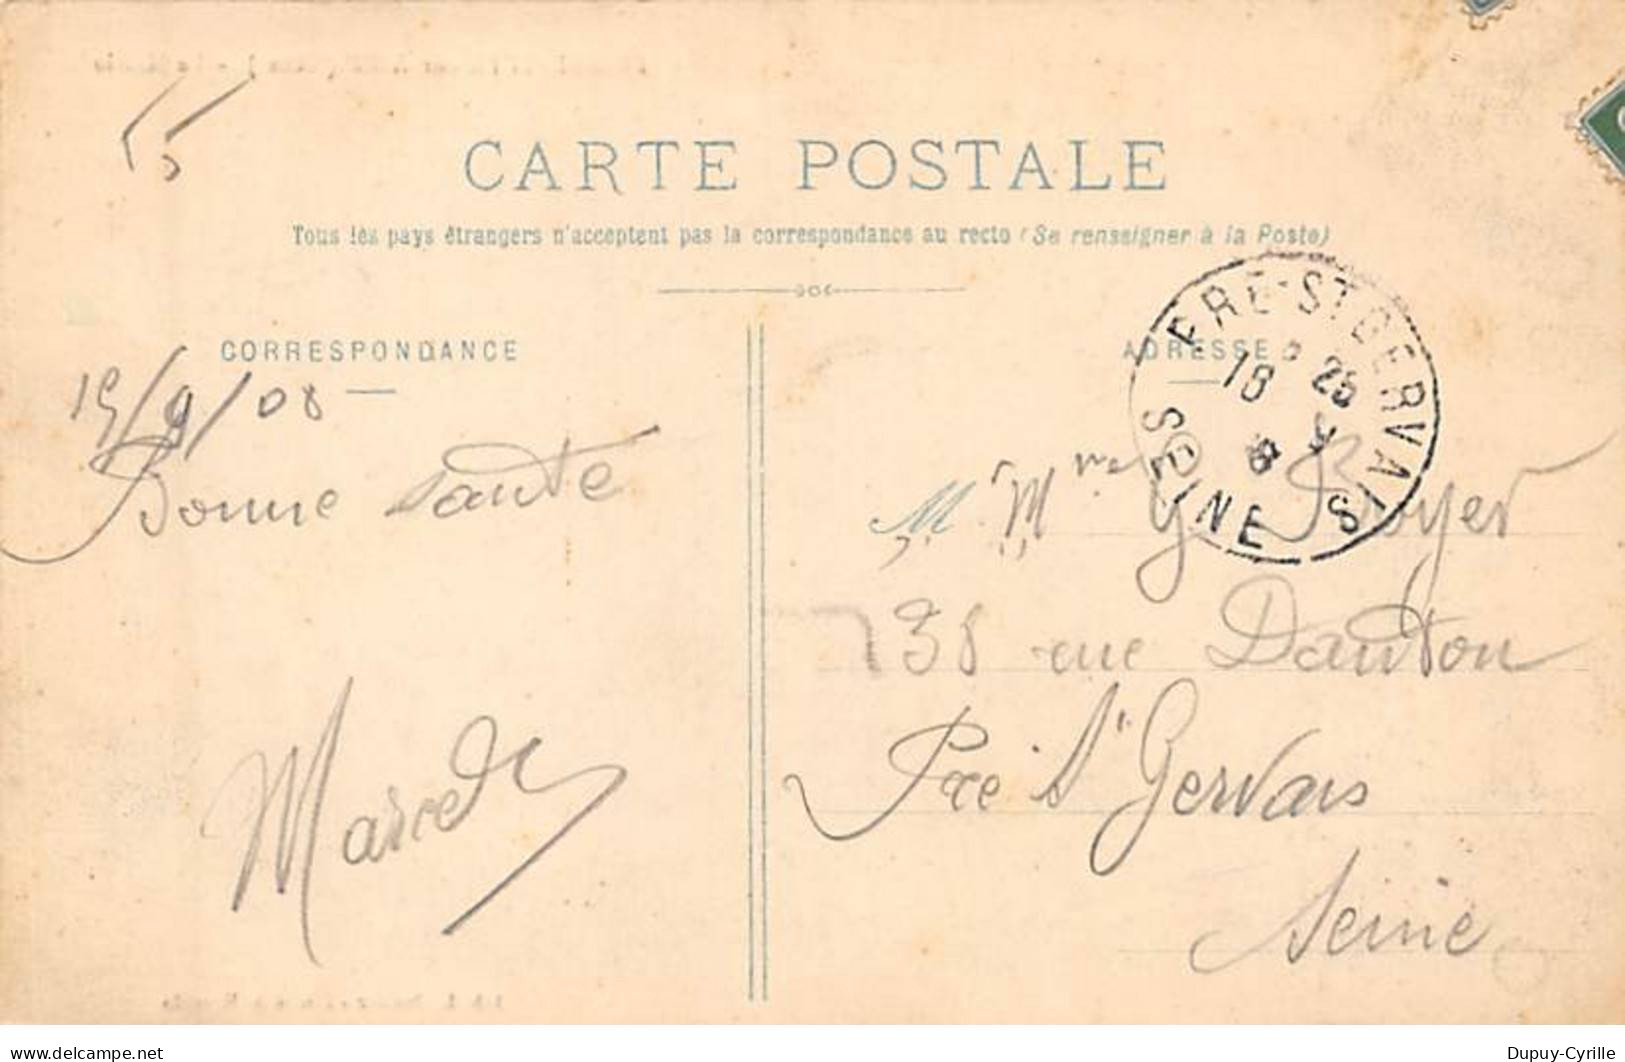 55
CARTE POSTALE
Tous les pays étrangers n'acceptent pas la correspondance au recto (Se renseigner à la Poste)
CORRESPONDANCE
15/9/08
Bonne santé
Marcel
ADRESSE
PRE-ST GERVAIS
18 25
SEINE
M Mme G. Royer
38 rue Danton
Pré St Gervais
Seine
delcampe.net
Dupuy-Cyrille